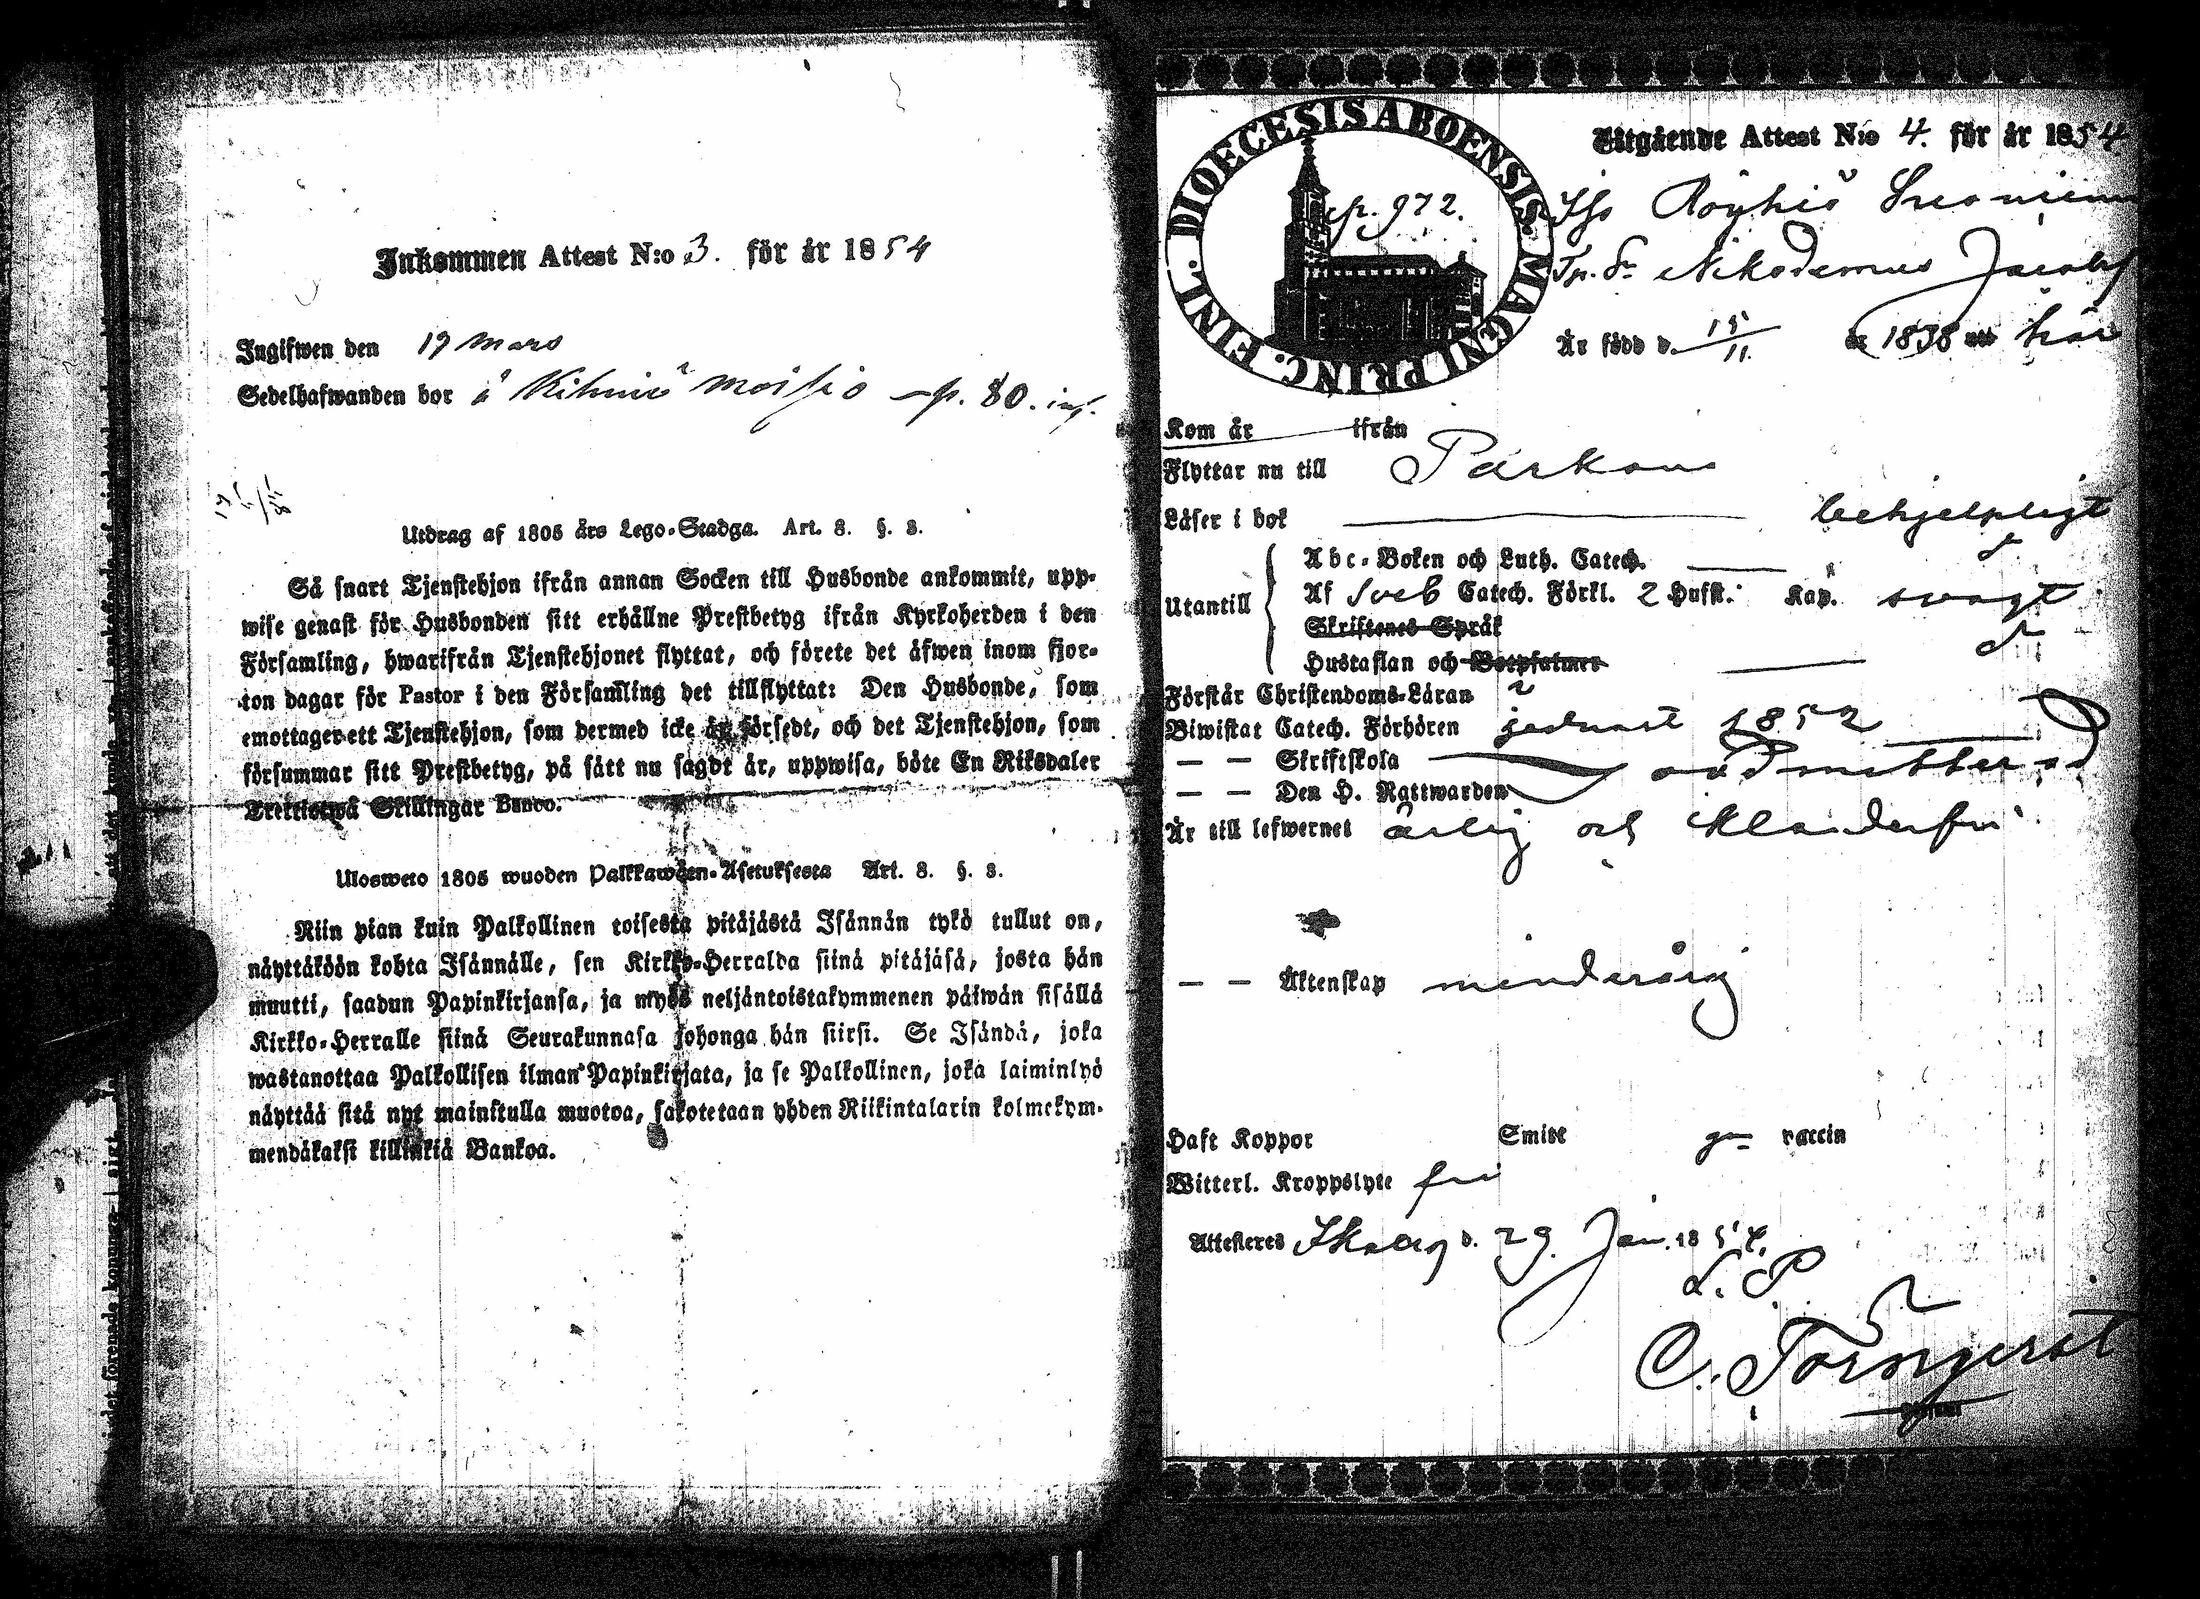 Inkommen Attest N:o 3. för år 1854
Ingifwen den 19 Mars
Sedelhafwanden bor å Kihniö Moisio p. 80.
Utdrag af 1805 års Lego-Stadga. Art. 8. §. 3.
Så snart Tjenstehjon ifrån annan Socken till Husbonde ankommit, upp-
wise genast för Husbonden sitt erhållne Prestbetyg ifrån Kyrkoherden i den
Församling, hwarifrån Tjenstehjonet flyttat, och förete det äfwen inom fjor-
ton dagar för Pastor i den Församling det tillflyttat: Den Husbonde, som
emottager ett Tjenstehjon, som dermed icke är försedt, och det Tjenstehjon, som
försummar sitt Prestbetyg, på sätt nu sagdt är, uppwisa, böte En Riksdaler
Trettiotwå Skillingar Banco.
Ulosweto 1805 wuoden Palkkawäen-Asetuksesta Art. 8. §. 3.
Niin pian kuin Palkollinen toisesta pitäjästä Isännän tykö tullut on,
näyttäköön kohta Isännälle, sen Kirkko-Herralda siinä pitäjäsä, josta hän
muutti, saadun Papinkirjansa, ja myös neljäntoistakymmenen päiwän sisällä
Kirkko-Herralle siinä Seurakunnasa johonga hän siirsi. Se Isändä, joka
wastanottaa Palkollisen ilman Papinkirjata, ja se Palkollinen, joka laiminlyö
näyttää sitä nyt mainitulla muotoa, sakotetaan yhden Riikintalarin kolmekym-
mendäkaksi killinkiä Bankoa.
DIOECESIS ABOENSIS. MAGNI PRINC. FINL.
p. 972.
Utgående Attest N:o 4. för år 1854
Röyhiö
Nikodemus Jacobs
Är född d. 15/11 år 1838 här
Kom år ifrån
Flyttar nu till Parkano
Läser i bok behjelpligt
Utantill
Abc-Boken och Luth. Catech.
Af Sveb Catech. Förkl. 2 Hufst. Kap. svagt
Skriftenes Språk
Hustaflan och Botpsalmer
Förstår Christendoms-Läran
Biwistat Catech. Förhören 1852
— — Skriftskola oadmitterad
— — Den H. Nattwarden
Är till lefwernet ärlig och klanderfri
— — Äktenskap minderårig
Haft Koppor Smitt vaccin
Witterl. Kroppslyte fri
Attesteres d. 29 Jan. 1854.
C. Törnqvist